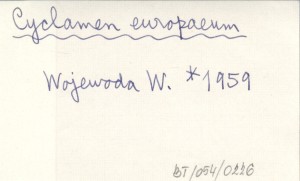 Cyclamen europaeum
Wojewoda W. *1959
BT/054/0226